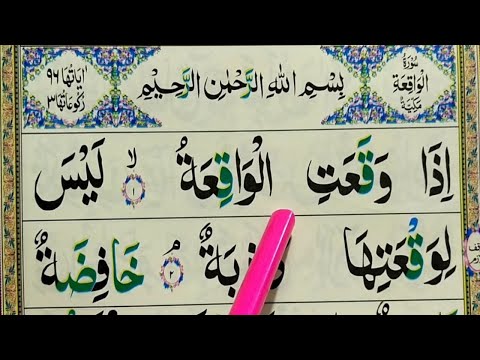 سُورَةُ الْوَاقِعَةِ مَكِّيَّةٌ
بِسْمِ اللهِ الرَّحْمٰنِ الرَّحِيْمِ
اٰيَاتُهَا ٩٦ رُكُوْعَاتُهَا ٣
اِذَا وَقَعَتِ الْوَاقِعَةُ ۙ ١ لَيْسَ
لِوَقْعَتِهَا خَافِضَةٌ ۘ ٢